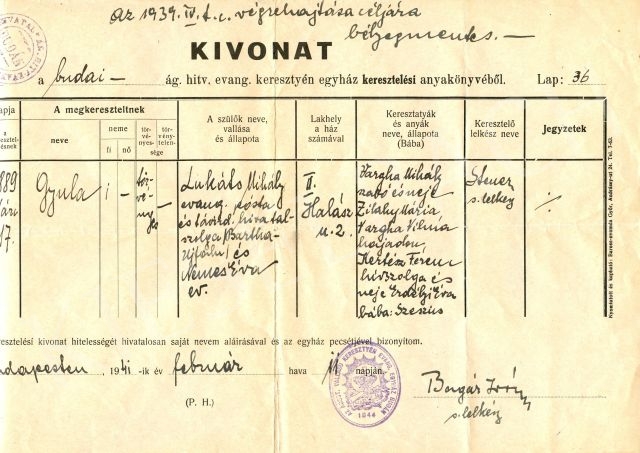 Az 1939. IV. t. c. végrehajtása céljára
bélyegmentes. —
KIVONAT
a budai — ág. hitv. evang. keresztyén egyház keresztelési anyakönyvéből. Lap: 36
A megkereszteltnek
neve
neme
fi
nő
tör-
vényes-
tör-
vénytelen-
sége
A szülők neve,
vallása
és állapota
Lakhely
a ház
számával
Keresztatyák
és anyák
neve, állapota
(Bába)
Keresztelő
lelkész neve
Jegyzetek
889
17.
Gyula
i
–
tör-
vé-
nyes
Lukáts Mihály
evang. posta
és távird. hivatal-
szolga
és
Nemes Éva
ev.
II.
Halász
u. 2.
Vargha Mihály
szabó és neje
Zilahy Mária,
Vargha Vilma
hajadon,
Kertész Ferenc
hiv. szolga és
neje Erdélyi Éva
bába:
s. lelkész
·/·
resztelési kivonat hitelességét hivatalosan saját nevem aláírásával és az egyház pecsétjével bizonyítom.
udapesten 1941-ik év február hava 11 napján.
(P. H.)
1844
s. lelkész